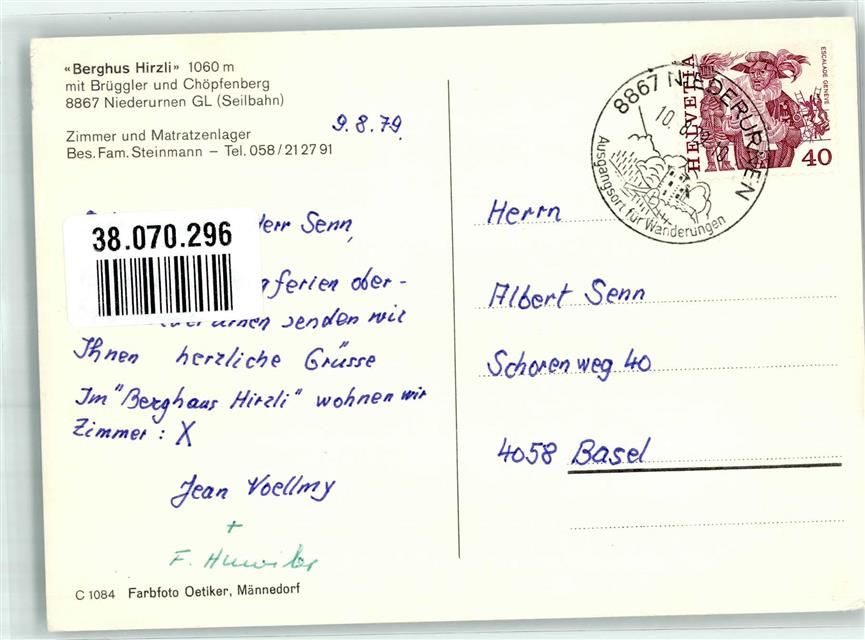 «Berghus Hirzli» 1060 m
mit Brüggler und Chöpfenberg
8867 Niederurnen GL (Seilbahn)
Zimmer und Matratzenlager
Bes. Fam. Steinmann – Tel. 058/21 27 91
9.8.79
38.070.296
Herr Senn,
ferien ober-
senden wir
Ihnen herzliche Grüsse
Im "Berghaus Hirzli" wohnen wir
Zimmer: X
Jean Voellmy
+
F.
C 1084 Farbfoto Oetiker, Männedorf
8867 NIEDERURNEN
10.8.
Ausgangsort für Wanderungen
HELVETIA
ESCALADE GENÈVE
40
Herrn
Albert Senn
Schorenweg 40
4058 Basel